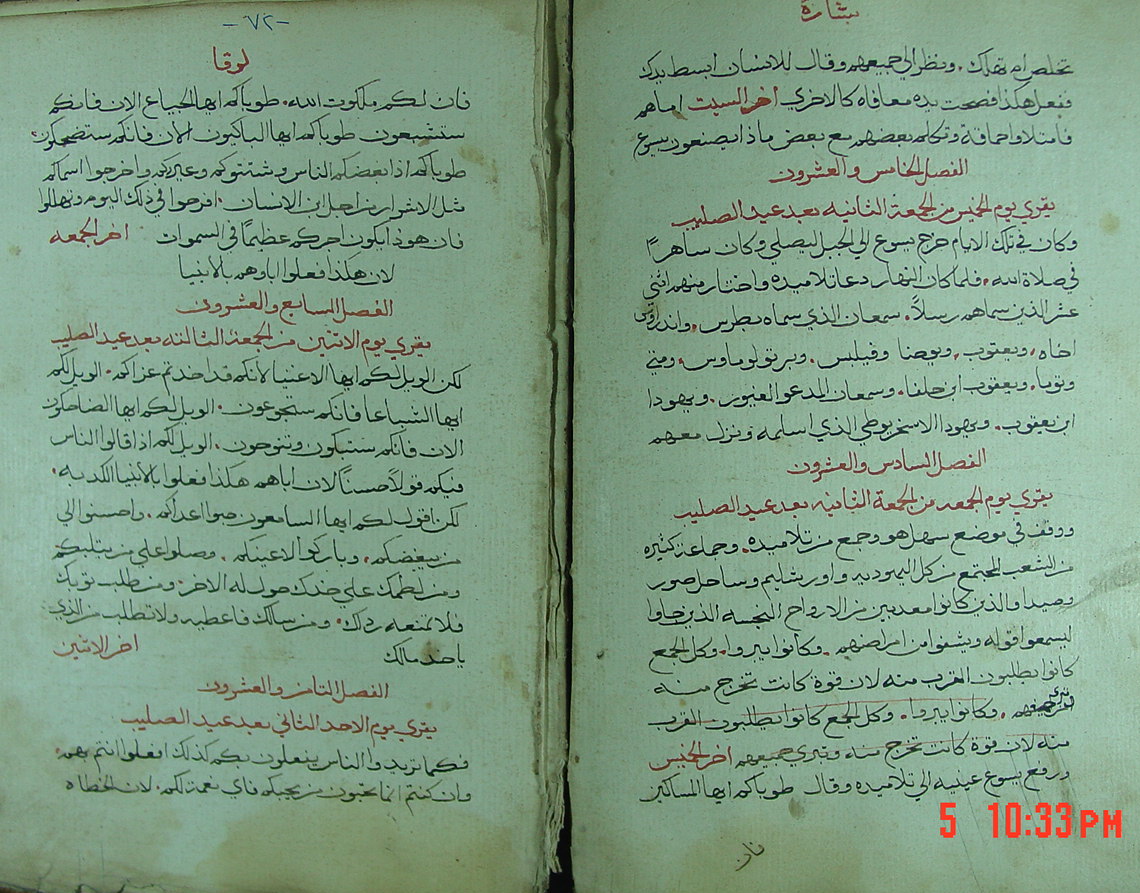 بشارة
تخلص ام تهلك. ونظر الي جميعهم وقال للانسان ابسط يدك
ففعل هكذا فصحت يده معافاه كالاخري اخر السبت اما هم
فامتلاوا حماقة وتكلم بعضهم مع بعض ماذا يصنعون بيسوع
الفصل الخامس والعشرون
يقري يوم الخميس من الجمعة الثانيه بعد عيد الصليب
وكان في تلك الايام خرج يسوع الي الجبل ليصلي وكان ساهراً
في صلاة الله. فلما كان النهار دعا تلاميذه واختار منهم اثني
عشر الذين سماهم رسلاً. سمعان الذي سماه بطرس. واندراوس
اخاه. ويعقوب. ويوحنا وفيلبس. وبرتولوماوس. ومتي
وتوما. ويعقوب ابن حلفا. وسمعان المدعو الغيور. ويهودا
ابن يعقوب. ويهودا الاسخريوطي الذي اسلمه ونزل معهم
الفصل السادس والعشرون
يقري يوم الجمعه من الجمعة الثانيه بعد عيد الصليب
ووقف في موضع سهل هو وجمع من تلاميذه. وجماعة كثيره
من الشعب المجتمع من كل اليهوديه واورشليم وساحل صور
وصيدا والذين كانوا معذبين من الارواح النجسه الذين جاوا
ليسمعوا قوله ويشفوا من امراضهم. وكانوا يبروا. وكل الجمع
كانوا يطلبون القرب منه لان قوة كانت تخرج منه
وتبري جميعهم. وكانوا يبروا. وكل الجمع كانوا يطلبون القرب
منه لان قوة كانت تخرج منه وتبري جميعهم اخر الخميس
ورفع يسوع عينيه الي تلاميذه وقال طوباكم ايها المساكين
فان
-٧٢-
لوقا
فان لكم ملكوت الله. طوباكم ايها الجياع الان فانكم
ستشبعون طوباكم ايها الباكيون الان فانكم ستضحكون.
طوباكم اذا بغضكم الناس وشتتوكم وعيروكم واخرجوا اسماكم
مثل الاشرار من اجل ابن الانسان. افرحوا في ذلك اليوم وتهللوا
فان هوذا يكون اجركم عظيماً في السموات اخر الجمعه
لان هكذا فعلوا اباوهم بالانبيا
الفصل السابع والعشرون
يقري يوم الاثنين من الجمعة الثالثه بعد عيد الصليب
لكن الويل لكم ايها الاغنيا لانكم قد اخذتم عزاكم. الويل لكم
ايها الشباعا فانكم ستجوعون. الويل لكم ايها الضاحكون
الان فانكم ستبكون وتنوحون. الويل لكم اذا قالوا الناس
فيكم قولاً حسناً لان اباهم هكذا فعلوا بالانبيا الكدبه.
لكن اقول لكم ايها السامعون حبوا اعداكم. واحسنوا الي
من يبغضكم. وباركوا لاعنيكم. وصلوا علي من يثلبكم
ومن لطمك علي خدك حول له الاخر. ومن طلب ثوبك
فلا تمنعه رداك. ومن سالك فاعطيه ولا تطلب من الذي
ياخذ مالك اخر الاثنين
الفصل الثامن والعشرون
يقري يوم الاحد الثاني بعد عيد الصليب
فكما تريدوا الناس يفعلون بكم كذلك افعلوا انتم بهم.
وان كنتم انما تحبون من يحبكم فاي نعمة لكم. لان الخطاه
5 10:33PM